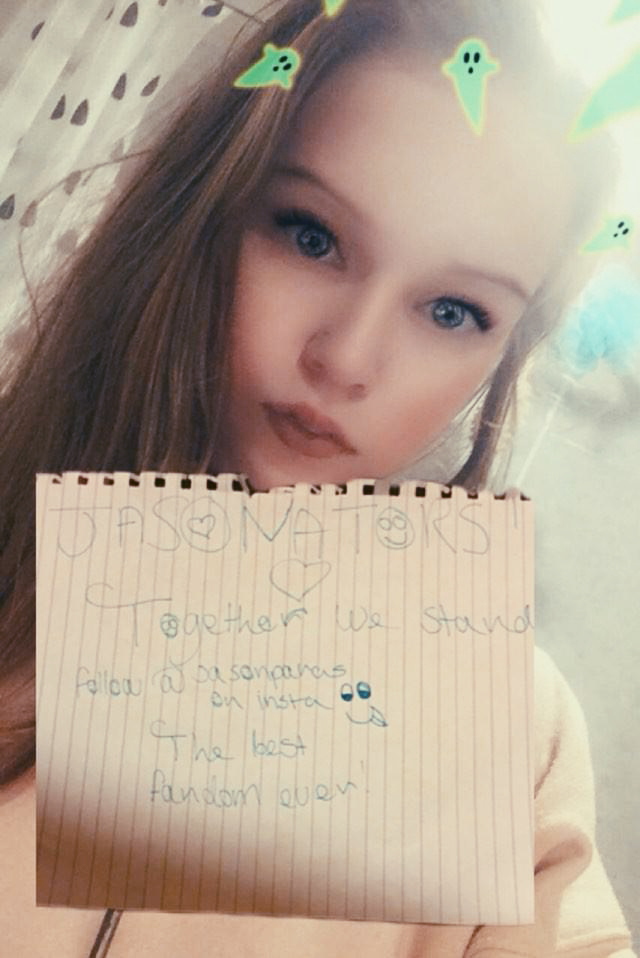 JASONATORS!
Together we stand
follow @jasonparas
on insta
The best
fandom ever!